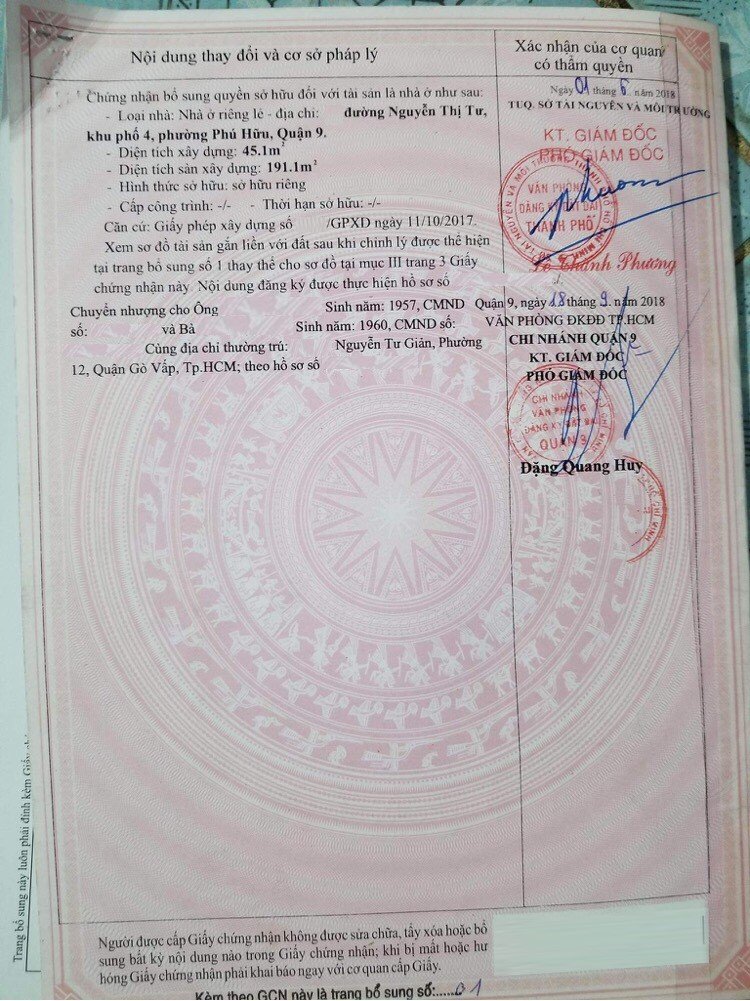 Nội dung thay đổi và cơ sở pháp lý
Xác nhận của cơ quan
có thẩm quyền
Chứng nhận bổ sung quyền sở hữu đối với tài sản là nhà ở như sau:
- Loại nhà: Nhà ở riêng lẻ - địa chỉ: đường Nguyễn Thị Tư,
khu phố 4, phường Phú Hữu, Quận 9.
- Diện tích xây dựng: 45.1m²
- Diện tích sàn xây dựng: 191.1m²
- Hình thức sở hữu: sở hữu riêng
- Cấp công trình: -/- - Thời hạn sở hữu: -/-
Căn cứ: Giấy phép xây dựng số /GPXD ngày 11/10/2017.
Xem sơ đồ tài sản gắn liền với đất sau khi chỉnh lý được thể hiện
tại trang bổ sung số 1 thay thế cho sơ đồ tại mục III trang 3 Giấy
chứng nhận này. Nội dung đăng ký được thực hiện hồ sơ số
Ngày 01 tháng 6 năm 2018
TUQ. SỞ TÀI NGUYÊN VÀ MÔI TRƯỜNG
KT. GIÁM ĐỐC
PHÓ GIÁM ĐỐC
VĂN PHÒNG
ĐĂNG KÝ ĐẤT ĐAI
THÀNH PHỐ
Lê Thành Phương
Chuyển nhượng cho Ông Sinh năm: 1957, CMND
số: và Bà Sinh năm: 1960, CMND số:
Cùng địa chỉ thường trú: Nguyễn Tư Giản, Phường
12, Quận Gò Vấp, Tp.HCM; theo hồ sơ số
Quận 9, ngày 18 tháng 9 năm 2018
VĂN PHÒNG ĐKĐĐ TP.HCM
CHI NHÁNH QUẬN 9
KT. GIÁM ĐỐC
PHÓ GIÁM ĐỐC
CHI NHÁNH
VĂN PHÒNG
ĐĂNG KÝ ĐẤT ĐAI
QUẬN 9
Đặng Quang Huy
Trang bổ sung này luôn phải đính kèm Giấy
Người được cấp Giấy chứng nhận không được sửa chữa, tẩy xóa hoặc bổ
sung bất kỳ nội dung nào trong Giấy chứng nhận; khi bị mất hoặc hư
hỏng Giấy chứng nhận phải khai báo ngay với cơ quan cấp Giấy.
Kèm theo GCN này là trang bổ sung số:.....01